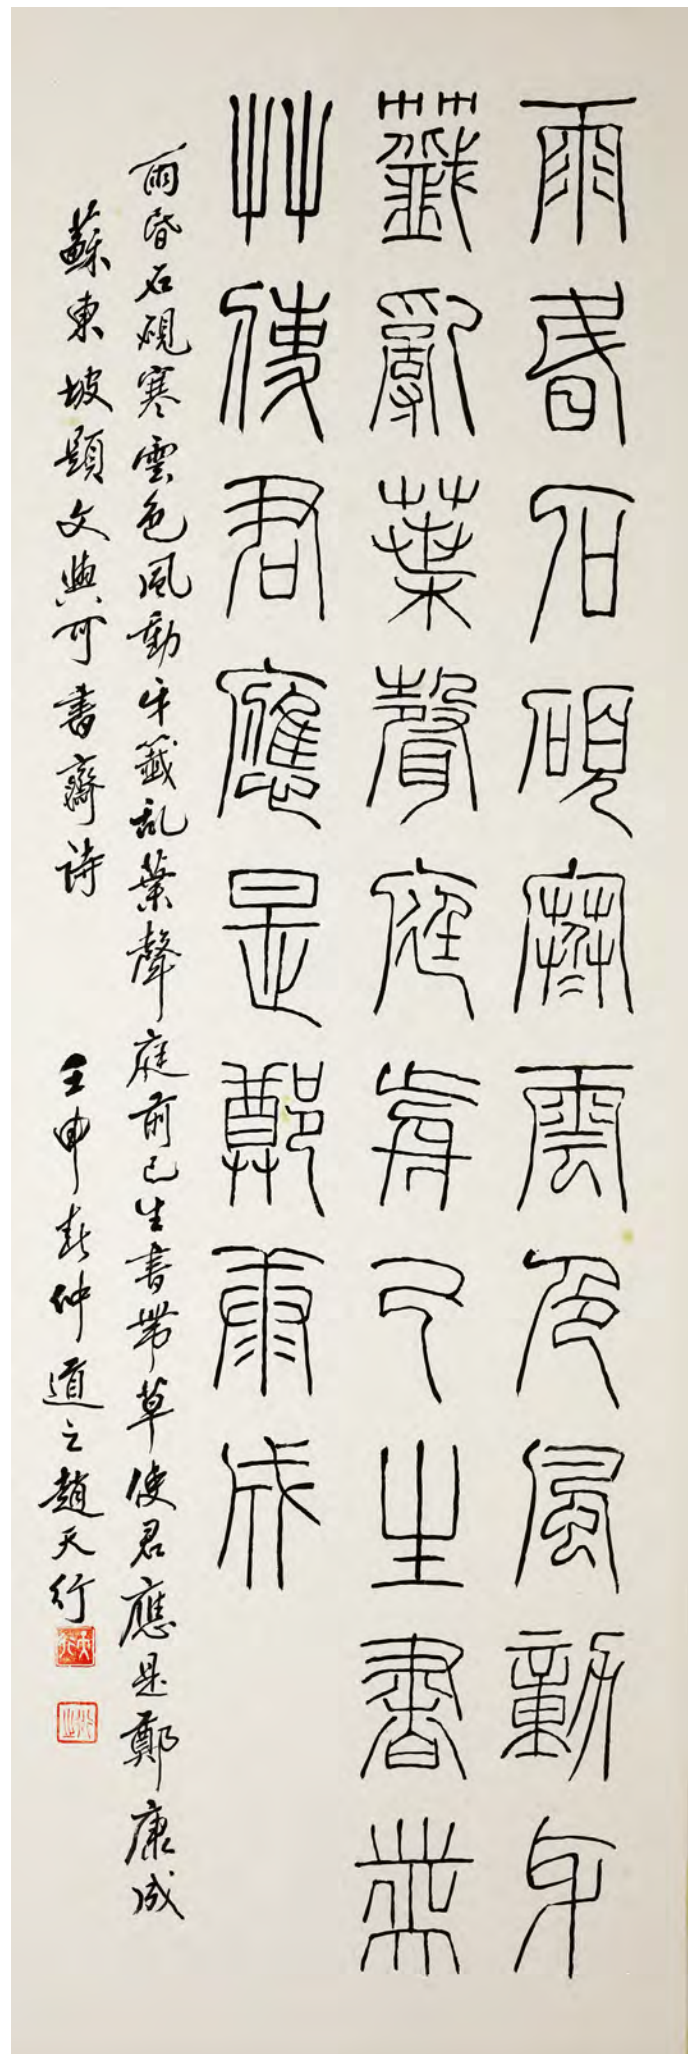 雨昏石硯寒雲色風動牙
籤亂葉聲庭前已生書帶
艸使君應是鄭康成
雨昏石硯寒雲色風動牙籤乱葉聲庭前已生書帶草使君應是鄭康成
蘇東坡題文與可書齋詩 壬申春仲道之趙天行